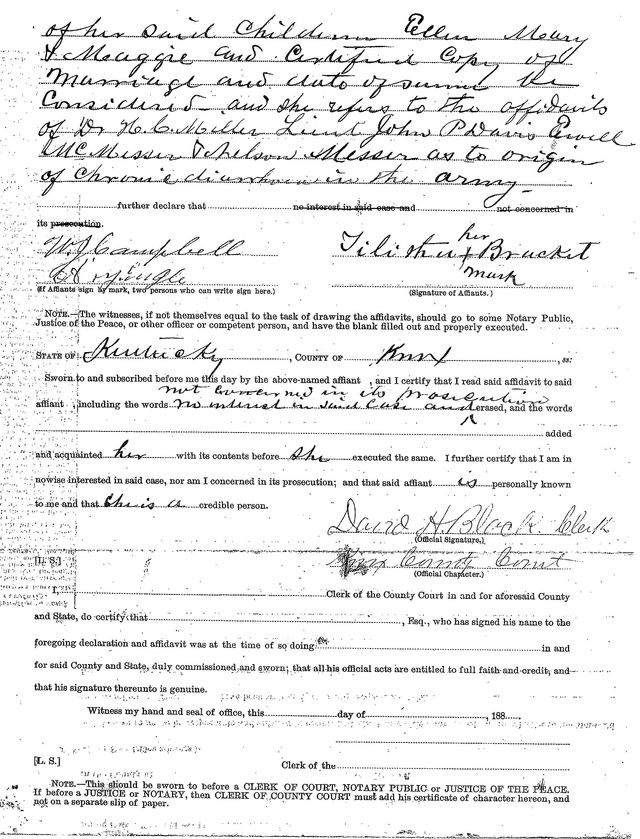 of her said Children Ellen Meary
& Meaggie and Certified Copy of
Marriage and date of same be
Considered and she refers to the affidavits
of Dr H. C. Miller Lieut John P Davis Ewell
Mc Messer & Nelson Messer as to origin
of Chronic diarrhoea in the army
further declare that no interest in said case and not concerned in
its prosecution.
W. J. Campbell her
Tilitha x Brucket
mark
(If Affiants sign by mark, two persons who can write sign here.) (Signature of Affiants.)
NOTE.—The witnesses, if not themselves equal to the task of drawing the affidavits, should go to some Notary Public,
Justice of the Peace, or other officer or competent person, and have the blank filled out and properly executed.
STATE OF Kentucky, COUNTY OF Knox, ss:
Sworn to and subscribed before me this day by the above-named affiant , and I certify that I read said affidavit to said
not concerned in its prosecution
affiant , including the words no interest in said case and erased, and the words
added
and acquainted her with its contents before she executed the same. I further certify that I am in
nowise interested in said case, nor am I concerned in its prosecution; and that said affiant is personally known
to me and that she is a credible person.
David H. Black Clerk
(Official Signature.)
[L. S.] Knox County Court
(Official Character.)
I, Clerk of the County Court in and for aforesaid County
and State, do certify that , Esq., who has signed his name to the
foregoing declaration and affidavit was at the time of so doing in and
for said County and State, duly commissioned and sworn; that all his official acts are entitled to full faith and credit, and
that his signature thereunto is genuine.
Witness my hand and seal of office, this day of , 188
[L. S.] Clerk of the
NOTE.—This should be sworn to before a CLERK OF COURT, NOTARY PUBLIC or JUSTICE OF THE PEACE.
If before a JUSTICE or NOTARY, then CLERK OF COUNTY COURT must add his certificate of character hereon, and
not on a separate slip of paper.